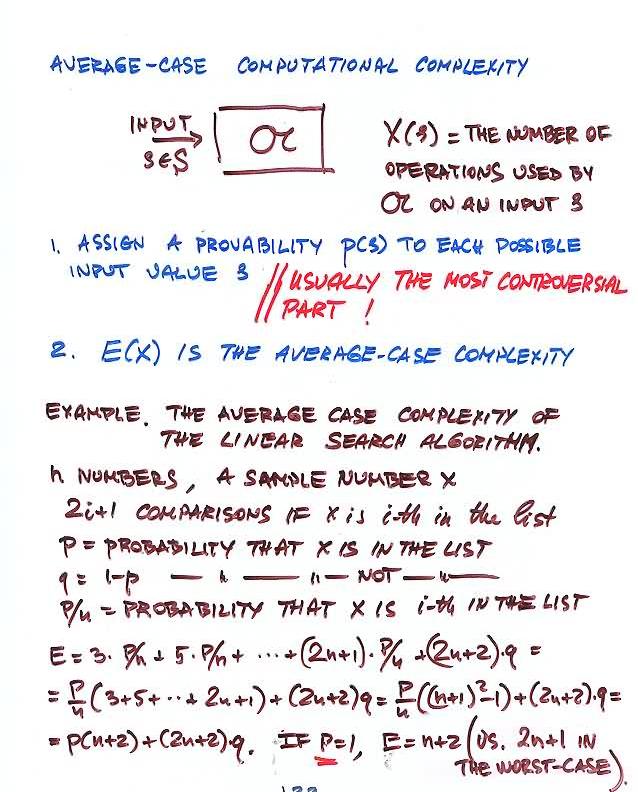 AVERAGE-CASE COMPUTATIONAL COMPLEXITY
INPUT
s∈S
𝒪𝓁
X(s) = THE NUMBER OF
OPERATIONS USED BY
𝒪𝓁 ON AN INPUT s
1. ASSIGN A PROVABILITY p(s) TO EACH POSSIBLE
INPUT VALUE s // USUALLY THE MOST CONTROVERSIAL
PART !
2. E(X) IS THE AVERAGE-CASE COMPLEXITY
EXAMPLE. THE AVERAGE CASE COMPLEXITY OF
THE LINEAR SEARCH ALGORITHM.
n NUMBERS, A SAMPLE NUMBER X
2i+1 COMPARISONS IF X is i-th in the list
P = PROBABILITY THAT X IS IN THE LIST
q = 1-p — " — " — NOT — " —
P/n = PROBABILITY THAT X IS i-th IN THE LIST
E = 3·P/n + 5·P/n + ··· + (2n+1)·P/n + (2n+2)·q =
= P/n (3+5+···+2n+1) + (2n+2)q = P/n ((n+1)²-1) + (2n+2)·q =
= p(n+2) + (2n+2)·q. IF P=1, E = n+2 (VS. 2n+1 IN
THE WORST-CASE).